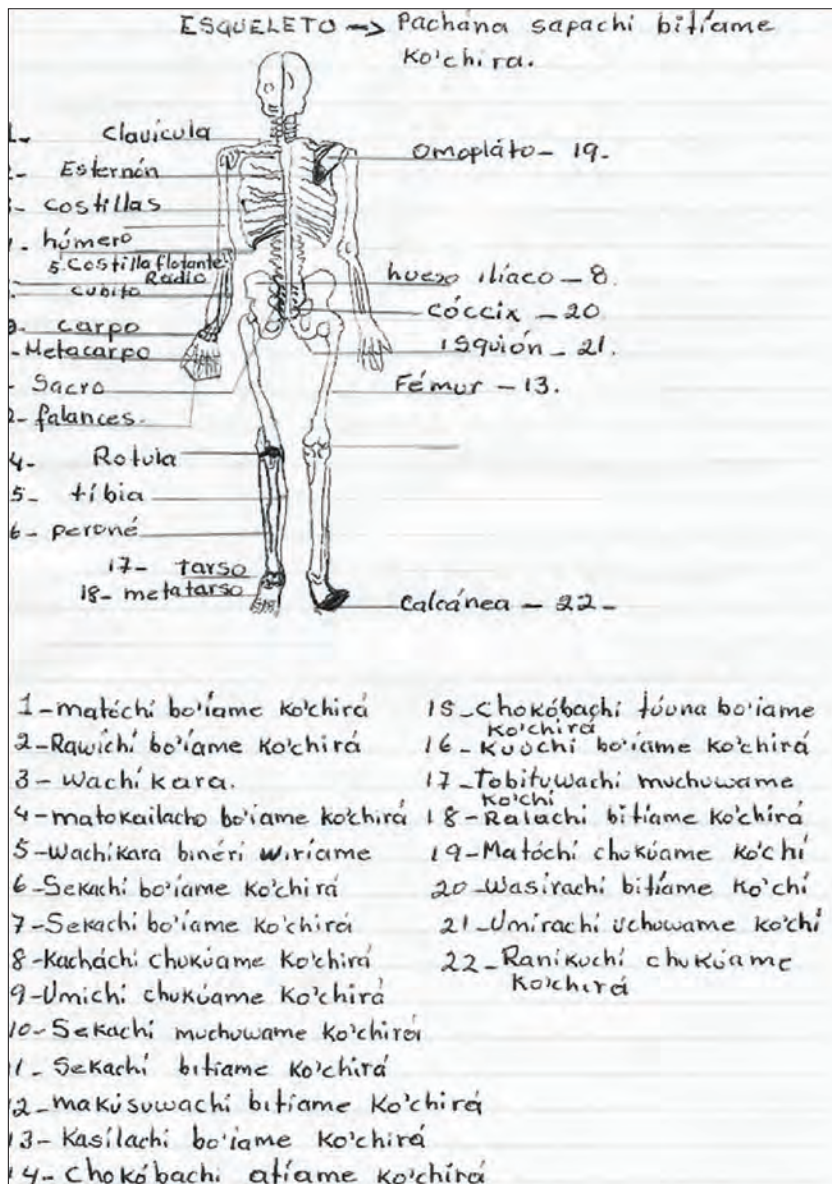 ESQUELETO -> Pachána sapachi bitíame
Ko'chira.
1- Clavícula
Omopláto - 19.
2- Esternón
costillas
húmero
5. Costilla flotante
Radio
cubito
hueso ilíaco - 8.
cóccix - 20
carpo
Metacarpo
isquión - 21.
Sacro
Fémur - 13.
2- falances.
4- Rotula
5- tíbia
6- peroné
17- tarso
18- metatarso
Calcánea - 22-
1-matóchi bo'íame ko'chirá
2-Rawíchi bo'íame ko'chirá
3-Wachíkara.
4-matokailacho bo'íame ko'chirá
5-Wachíkara binéri wiríame
6-Sekachí bo'íame ko'chirá
7-Sekachí bo'íame ko'chirá
8-Kacháchi chukúame Ko'chirá
9-Umichí chukúame Ko'chirá
10-Sekachí muchuwame ko'chirá
11-Sekachí bitíame Ko'chirá
12-makúsuwachi bitíame Ko'chirá
13-Kasílachi bo'íame ko'chirá
14-Chokóbachi atíame ko'chirá
15-Chokóbachi túuna bo'íame
ko'chirá
16-Kuúchi bo'íame ko'chirá
17-Tobituwachi muchuwame
ko'chí
18-Ralachi bitíame Ko'chirá
19-Matóchi chukúame Ko'chí
20-Wasirachi bitíame Ko'chí
21-Umírachi uchuwame ko'chí
22-Raníkuchi chukúame
ko'chirá